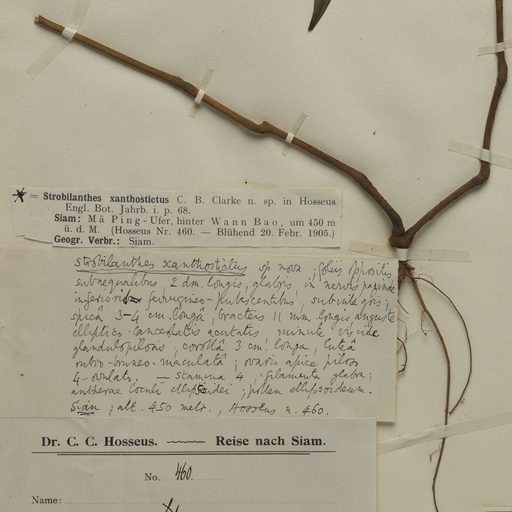 * = Strobilanthes xanthostictus C. B. Clarke n. sp. in Hosseus
Engl. Bot. Jahrb. i. p. 68.
Siam: Mä Ping-Ufer, hinter Wann Bao, um 450 m
ü. d. M. (Hosseus Nr. 460. — Blühend 20. Febr. 1905.)
Geogr. Verbr.: Siam.
Strobilanthes xanthostictus sp. nova, foliis oppositis
subaequalibus, 2 dm. longis, glabris in nervis paginae
inferioribus ferrugineo-pubescentibus, subintegris;
spicâ 3-4 cm. longâ, bracteis 11 mm. longis anguste
elliptico-lanceolatis acutatis, minute viscide
glanduloso pilosis, corollâ 3 cm. longa, luteâ
rubro-brunneo-maculatâ; ovario apice piloso
4-ovulato. — Stamina 4, filamenta glabra;
antherae loculi ellipsoidei; pollen ellipsoideum.
Siam; alt. 450 metr., Hosseus n. 460.
Dr. C. C. Hosseus. —— Reise nach Siam.
No. 460.
Name: